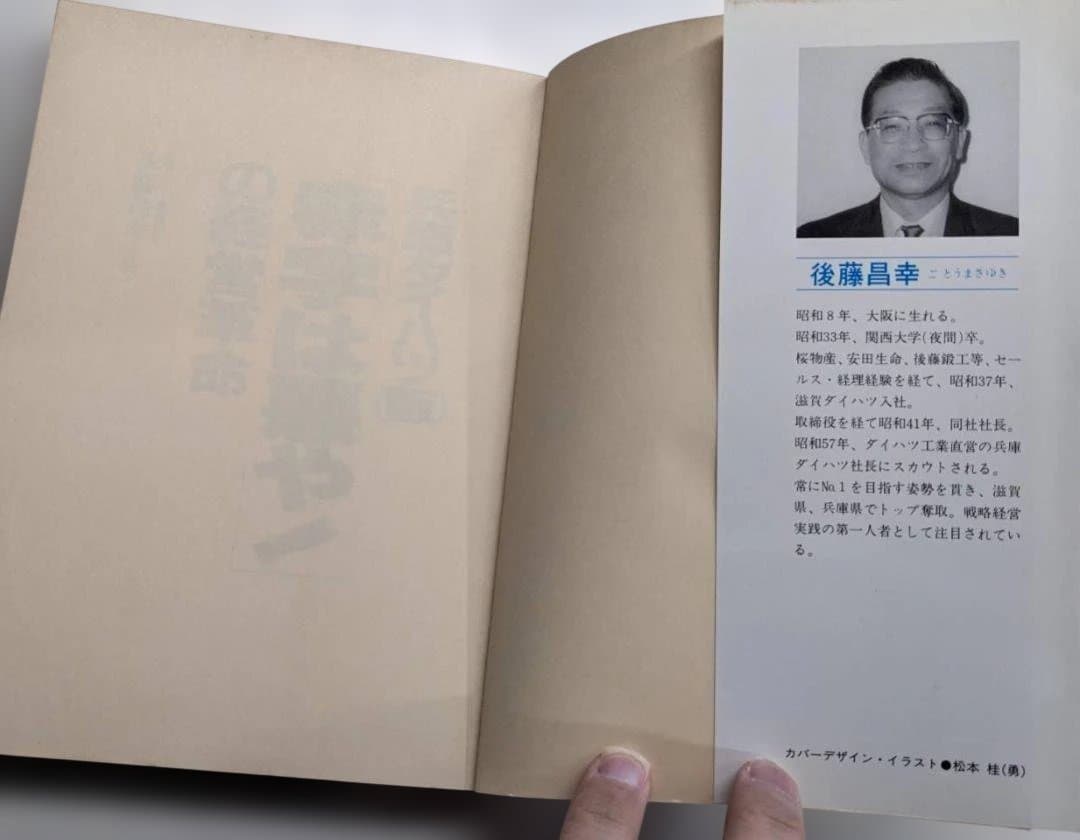 後藤昌幸 ごとうまさゆき
昭和8年、大阪に生れる。
昭和33年、関西大学(夜間)卒。
桜物産、安田生命、後藤鍛工等、セー
ルス・経理経験を経て、昭和37年、
滋賀ダイハツ入社。
取締役を経て昭和41年、同社社長。
昭和57年、ダイハツ工業直営の兵庫
ダイハツ社長にスカウトされる。
常に№1を目指す姿勢を貫き、滋賀
県、兵庫県でトップ奪取。戦略経営
実践の第一人者として注目されてい
る。
カバーデザイン・イラスト●松本 桂(勇)